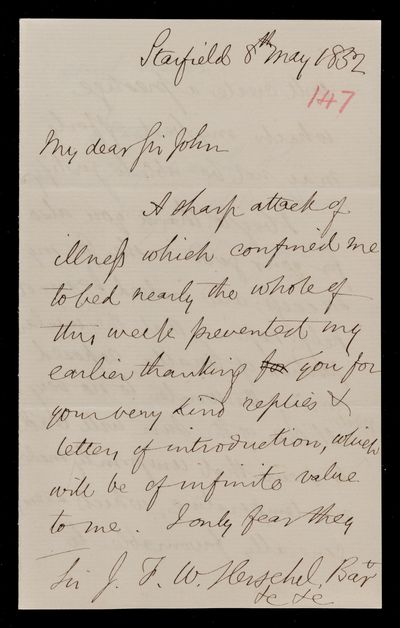 Starfield 8th May 1852
147
My dear Sir John
A sharp attack of
illness which confined me
to bed nearly the whole of
this week prevented my
earlier thanking for you for
your very kind replies &
letters of introduction, which
will be of infinite value
to me. I only fear they
Sir J. F. W. Herschel, Bart
&c &c